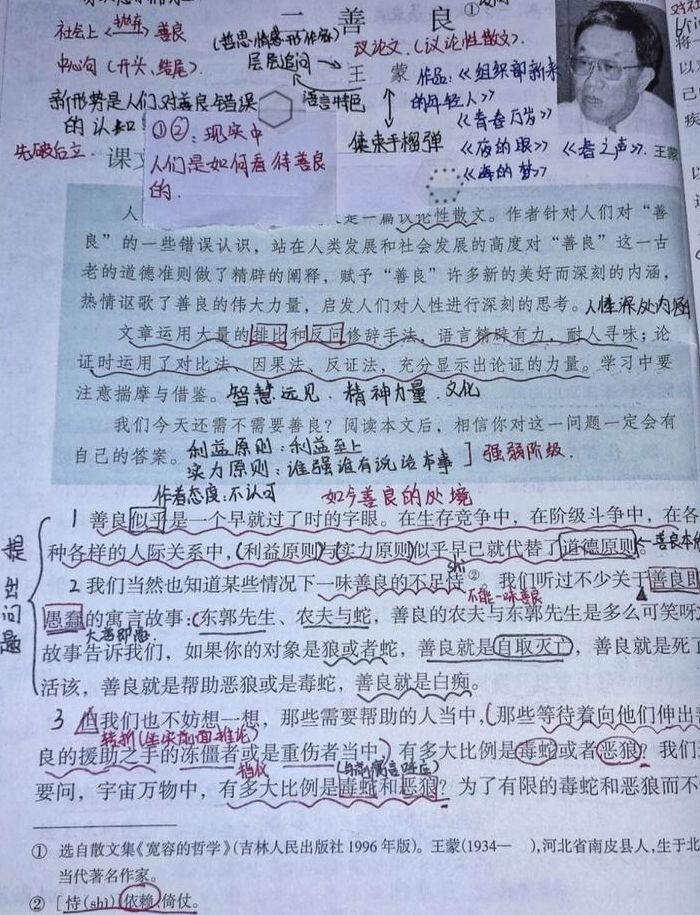 二 善 良①
社会上<抛弃>善良
(哲思情索形作家)
议论文.(议论性散文).
中心句(开头、结尾).
层层追问→
王 蒙
作品:《组织部新来的年轻人》
新形势是人们对善良错误的认知
语言特色
《青春万岁》
集束手榴弹
《夜的眼》
《春之声》
王蒙
《海的梦》
先破后立.
①②:现实中
人们是如何看待善良的.
课文
是一篇议论性散文。作者针对人们对“善
良”的一些错误认识，站在人类发展和社会发展的高度对“善良”这一古
老的道德准则做了精辟的阐释，赋予“善良”许多新的美好而深刻的内涵，
热情讴歌了善良的伟大力量，启发人们对人性进行深刻的思考。
人性深处内涵
文章运用大量的排比和反问修辞手法，语言精辟有力，耐人寻味；论
证时运用了对比法、因果法、反证法，充分显示出论证的力量。学习中要
注意揣摩与借鉴。
智慧远见.精神力量.文化
我们今天还需不需要善良？阅读本文后，相信你对这一问题一定会有
自己的答案。
利益原则:利益至上
实力原则:谁强谁有说话本事
强弱阶级.
作者态度:不认可
如今善良的处境
提出问题
1 善良似乎是一个早就过了时的字眼。在生存竞争中，在阶级斗争中，在各
种各样的人际关系中，(利益原则)与(实力原则)似乎早已就代替了道德原则。
2 我们当然也知道某些情况下一味善良的不足恃②。我们听过不少关于善良即
shì
不能一味善良
愚蠢的寓言故事：(东郭先生、农夫与蛇，善良的农夫与东郭先生是多么可笑呀
大善即愚
故事告诉我们，如果你的对象是狼或者蛇，善良就是自取灭亡，善良就是死了
活该，善良就是帮助恶狼或是毒蛇，善良就是白痴。
3 但我们也不妨想一想，那些需要帮助的人当中，(那些等待着向他们伸出善
良的援助之手的冻僵者或是重伤者当中)有多大比例是毒蛇或者恶狼？我们
要问，宇宙万物中，有多大比例是毒蛇和恶狼？为了有限的毒蛇和恶狼而不
① 选自散文集《宽容的哲学》(吉林人民出版社1996年版)。王蒙(1934— )，河北省南皮县人，生于北
当代著名作家。
② [恃(shì)]依赖，倚仗。